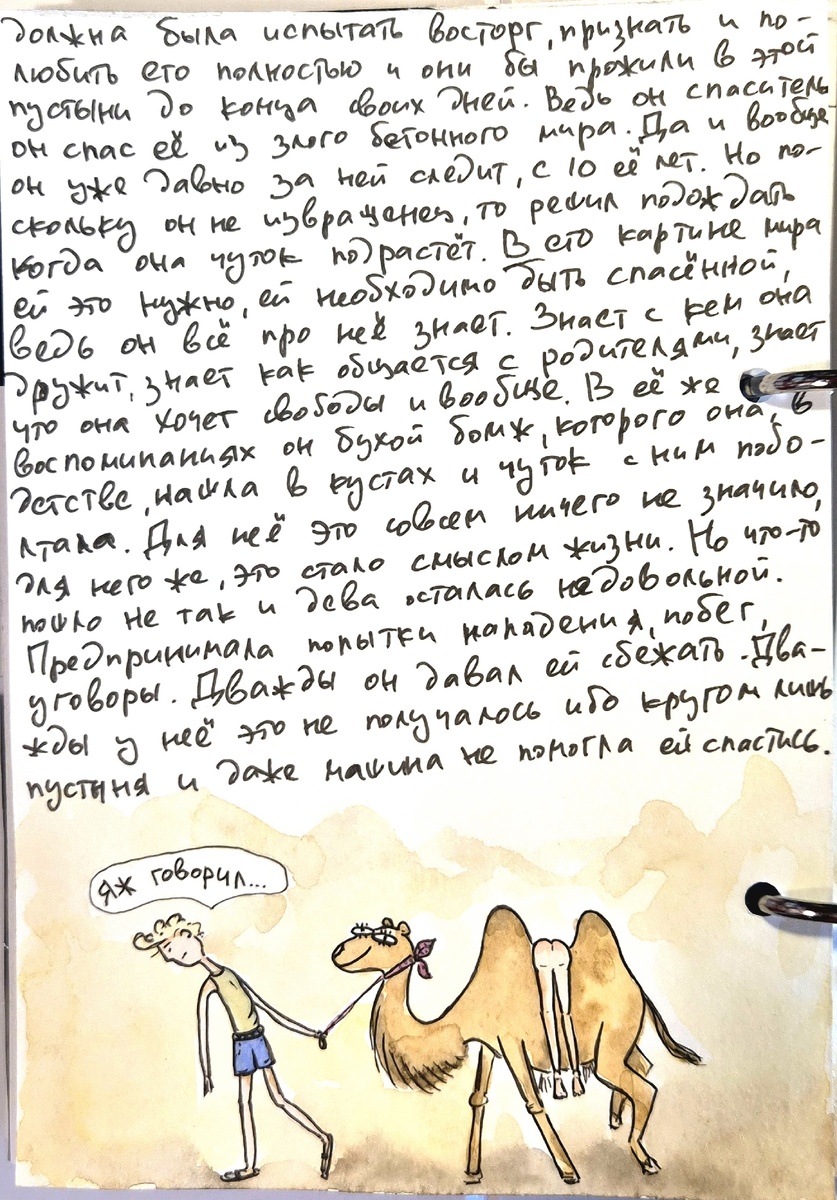 должна была испытать восторг, признать и по-
любить его полностью и они бы прожили в этой
пустыни до конца своих дней. Ведь он спаситель
он спас её из злого бетонного мира. Да и вообще
он уже давно за ней следит, с 10 её лет. Но по-
скольку он не извращенец, то решил подождать
когда она чуток подрастёт. В его картине мира
ей это нужно, ей необходимо быть спасённой,
ведь он всё про неё знает. Знает с кем она
дружит, знает как общается с родителями, знает
что она хочет свободы и вообще. В её же
воспоминаниях он бухой бомж, которого она, в
детстве, нашла в кустах и чуток с ним побо-
лтала. Для неё это совсем ничего не значило,
для него же, это стало смыслом жизни. Но что-то
пошло не так и дева осталась недовольной.
Предпринимала попытки нападения, побег,
уговоры. Дважды он давал ей сбежать. Два-
жды у неё это не получалось ибо кругом лишь
пустыня и даже машина не помогла ей спастись.
яж говорил...